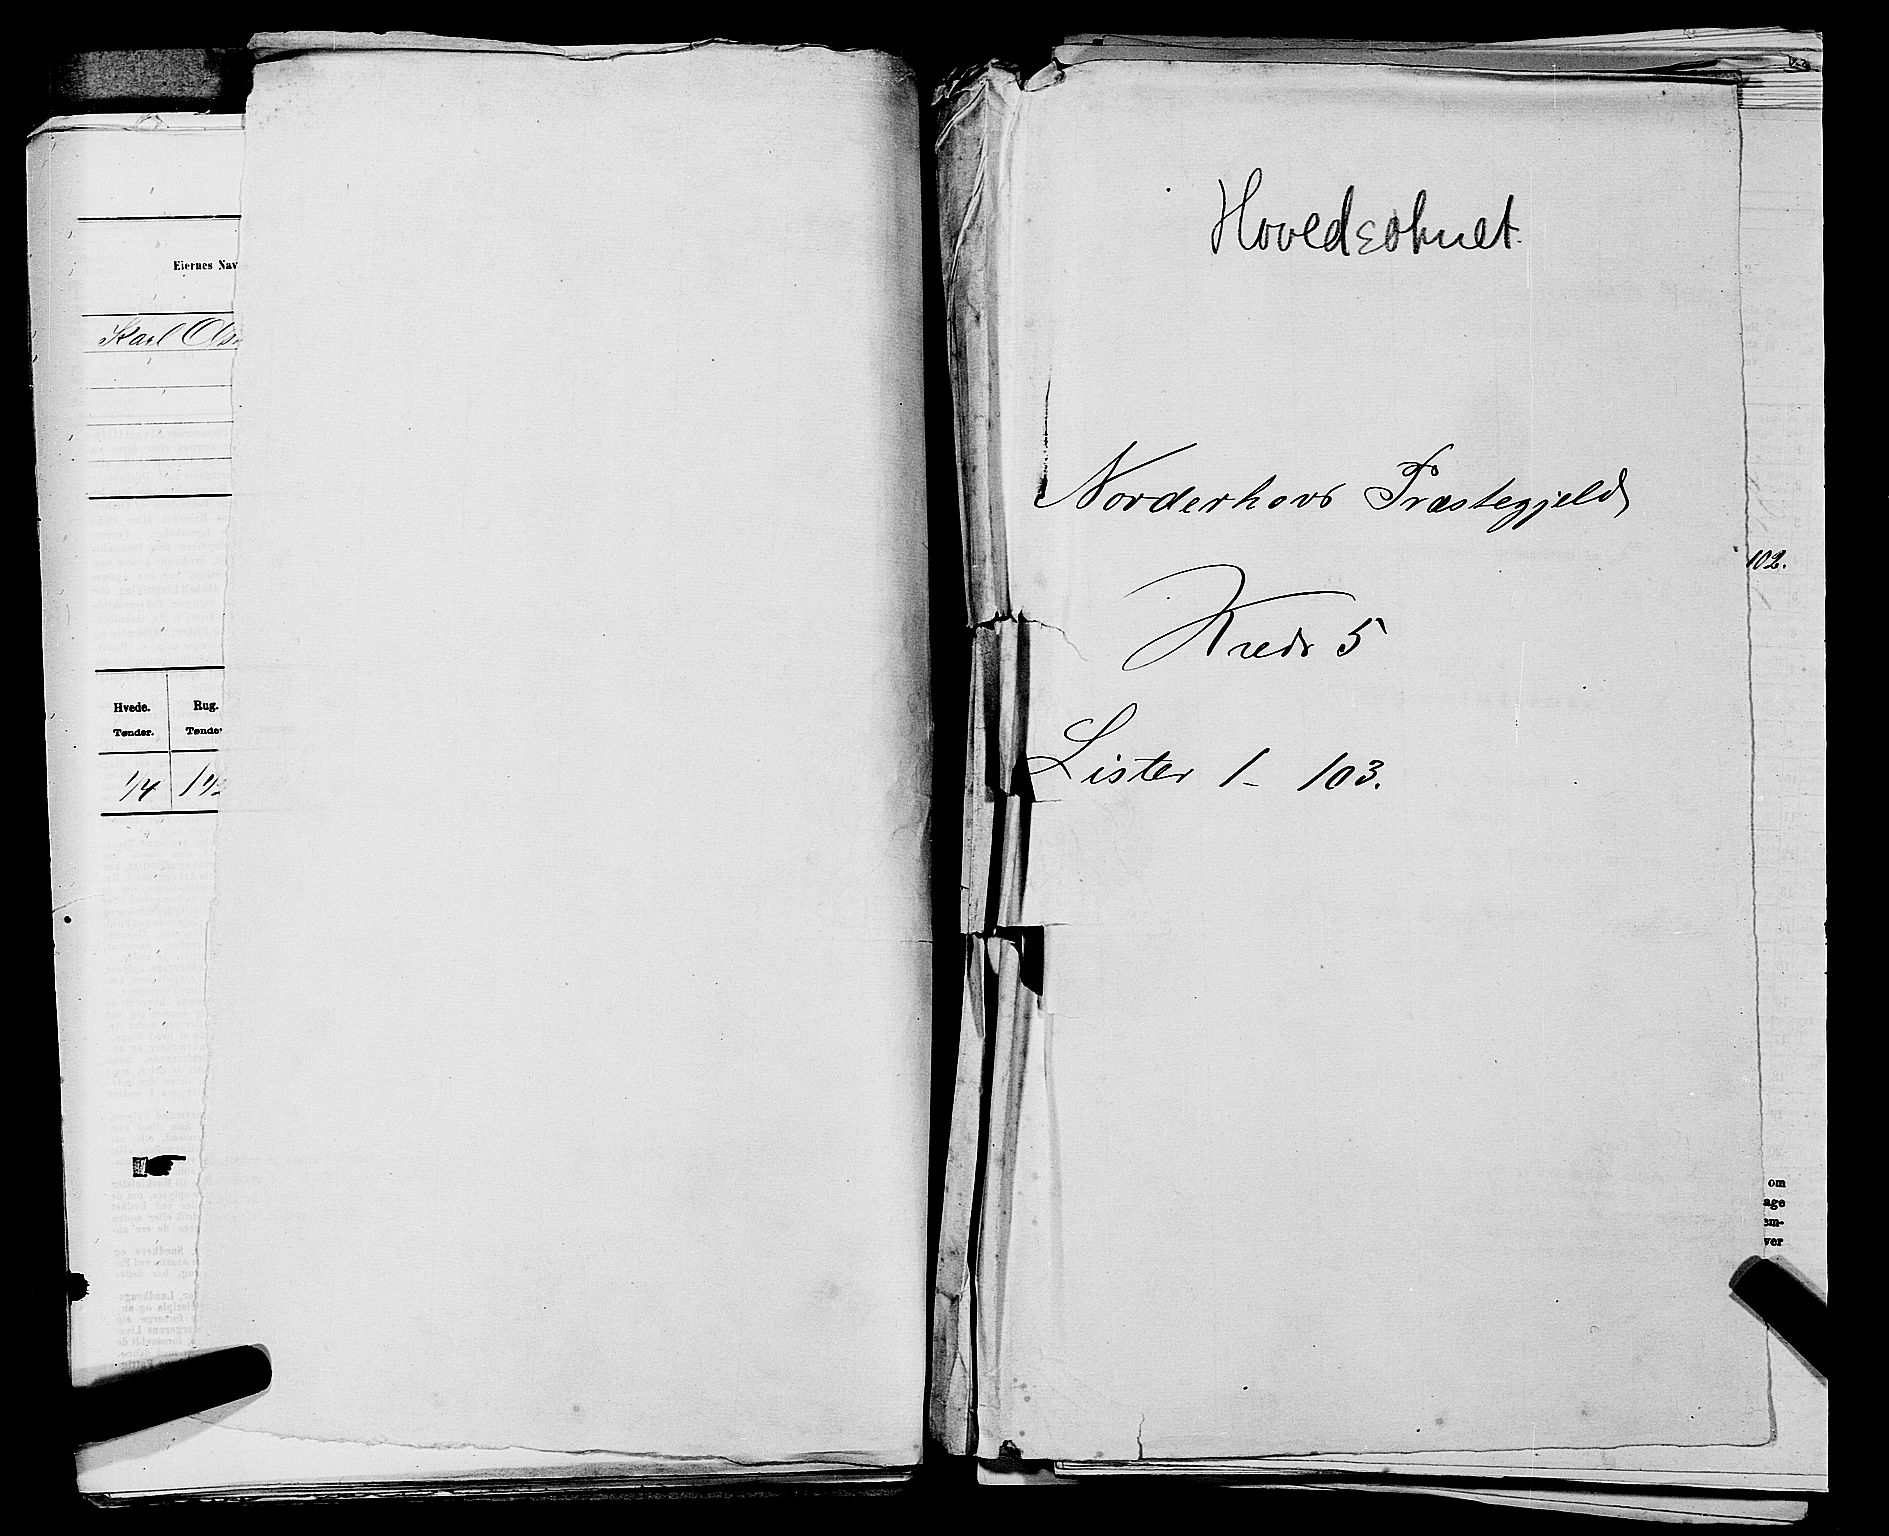 Eiernes Nav
Karl Ols
Hvede. Rug.
Tønder. Tønde
1/4 1 1/2
Hovedsoknet.
Norderhovs Præstegjeld
102.
Kreds 5
Lister 1 - 103.
om
age
em-
ver